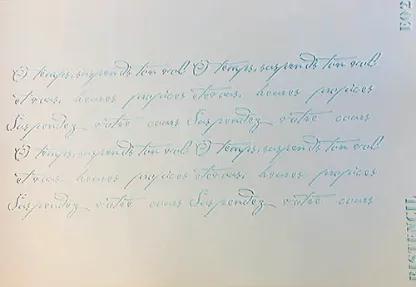 Ô temps, suspends ton vol Ô temps, suspends ton vol
et vous, heures propices et vous, heures propices
Suspendez votre cours Suspendez votre cours
Ô temps, suspends ton vol Ô temps, suspends ton vol
et vous, heures propices et vous, heures propices
Suspendez votre cours Suspendez votre cours